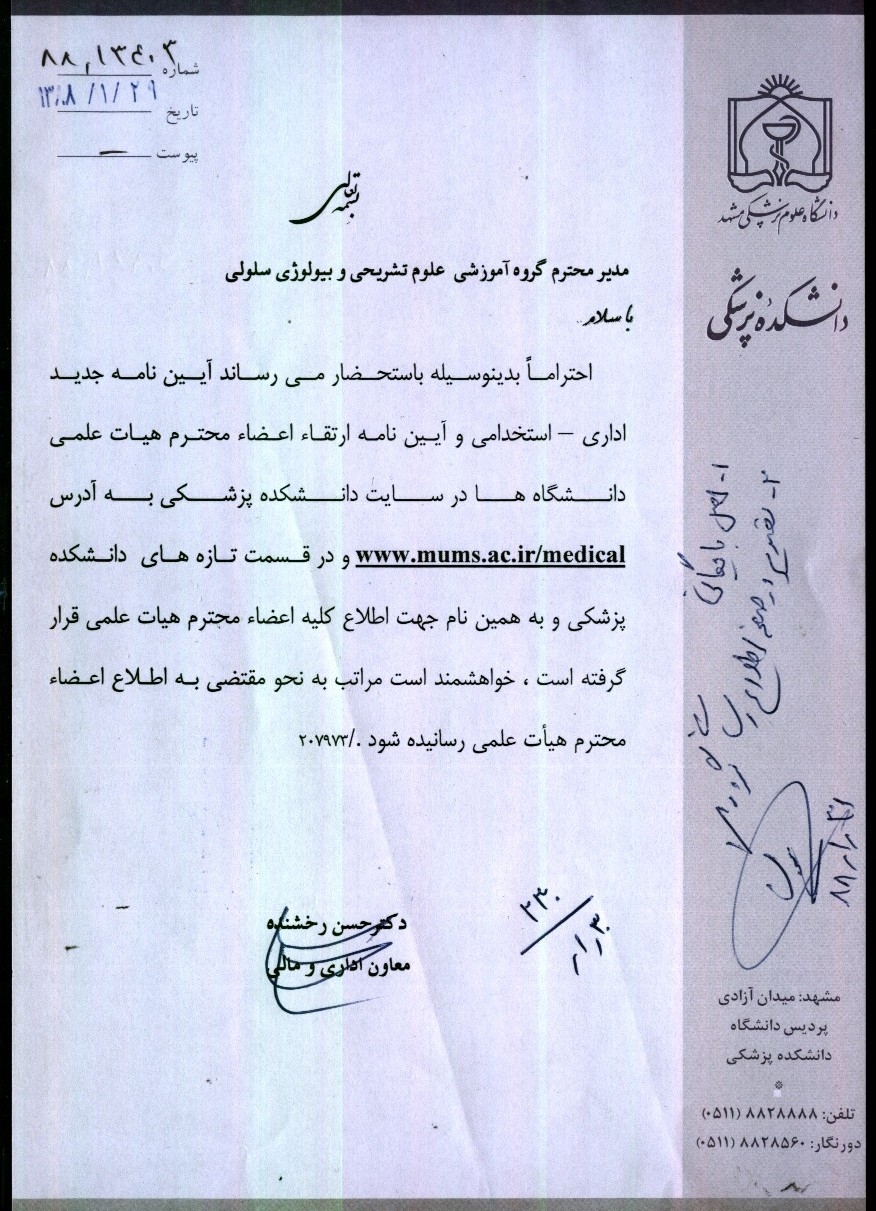 شماره ۸۸٫۱۳۴۰۳
تاریخ ۱۳۸۸/۱/۲۹
پیوست —
بسمه تعالی
دانشگاه علوم پزشکی مشهد
دانشکده پزشکی
مدیر محترم گروه آموزشی علوم تشریحی و بیولوژی سلولی
با سلام
احتراماً بدینوسیله باستحضار می رساند آیین نامه جدید
اداری – استخدامی و آیین نامه ارتقاء اعضاء محترم هیات علمی
دانشگاه ها در سایت دانشکده پزشکی به آدرس
www.mums.ac.ir/medical و در قسمت تازه های دانشکده
پزشکی و به همین نام جهت اطلاع کلیه اعضاء محترم هیات علمی قرار
گرفته است ، خواهشمند است مراتب به نحو مقتضی به اطلاع اعضاء
محترم هیأت علمی رسانیده شود ./۲۰۷۹۷۳
دکترحسن رخشنده
معاون اداری و مالی
۲۳۰
۱/۳۰
۱- اصل بایگانی
۲-
مشهد: میدان آزادی
پردیس دانشگاه
دانشکده پزشکی
تلفن: ۸۸۲۸۸۸۸ (۰۵۱۱)
دورنگار: ۸۸۲۸۵۶۰ (۰۵۱۱)